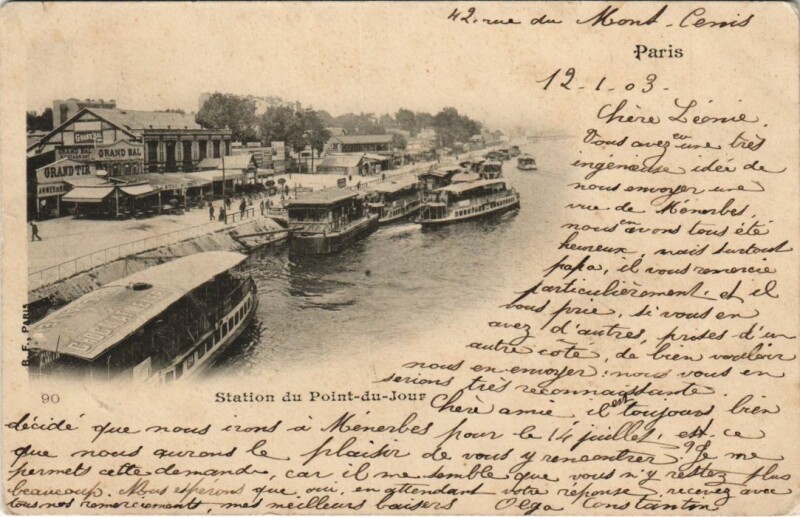 42. rue du Mont-Cenis
Paris
12-1-03-
Chère Léonie.
Vous avez eu une très
ingénieuse idée de
nous envoyer une
vue de Ménerbes,
nous en avons tous été
heureux, mais surtout
papa, il vous remercie
particulièrement, et il
vous prie, si vous en
avez d'autres, prises d'un
autre côté, de bien vouloir
nous en envoyer; nous vous en
serions très reconnaissante.
Chère amie, il est toujours bien
décidé que nous irons à Ménerbes pour le 14 juillet, est-ce
que nous aurons le plaisir de vous y rencontrer? Je me
permets cette demande, car il me semble que vous n'y restez plus
beaucoup. Nous espérons que oui, en attendant votre réponse, recevez avec
tous nos remerciements, mes meilleurs baisers Olga Constantin
GRAND BAL
GRAND BAL
GRAND TIR
B. F. PARIS
90
Station du Point-du-Jour